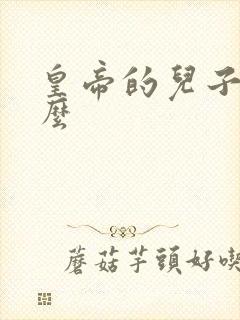 皇帝的兒子
麼
蘑菇芋頭好喫